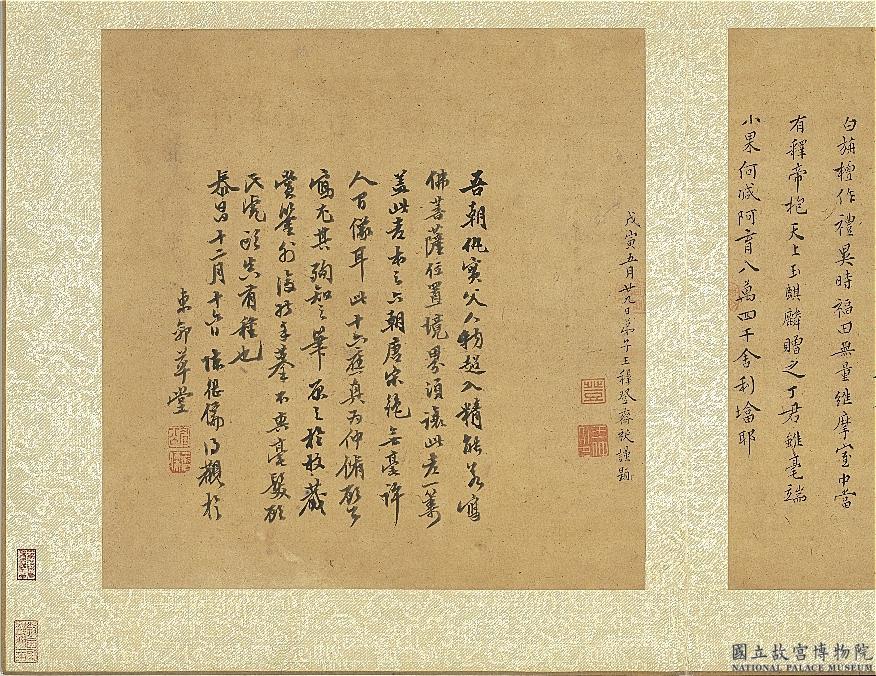 白旃檀作禮異時福田無量維摩室中當
有釋帝抱天上玉麒麟贈之丁君雖毫端
小果何減阿育八萬四千舍利塔耶
戊寅五月廿九日弟子王穉登齋祓謹題
吾朝仇實父人物超入精能若寫
佛菩薩位置境界須讓此老一籌
盖此老本之六朝唐宋絕無毫許
人百儀耳此十六應真為仲脩
寫尤其殉知之筆原之於收藏
賞鑒外復於手摹不爽毫髮
氏虎頭其有種也
泰昌十二月十六日陳繼儒得觀於
東郊草堂
國立故宮博物院
NATIONAL PALACE MUSEUM